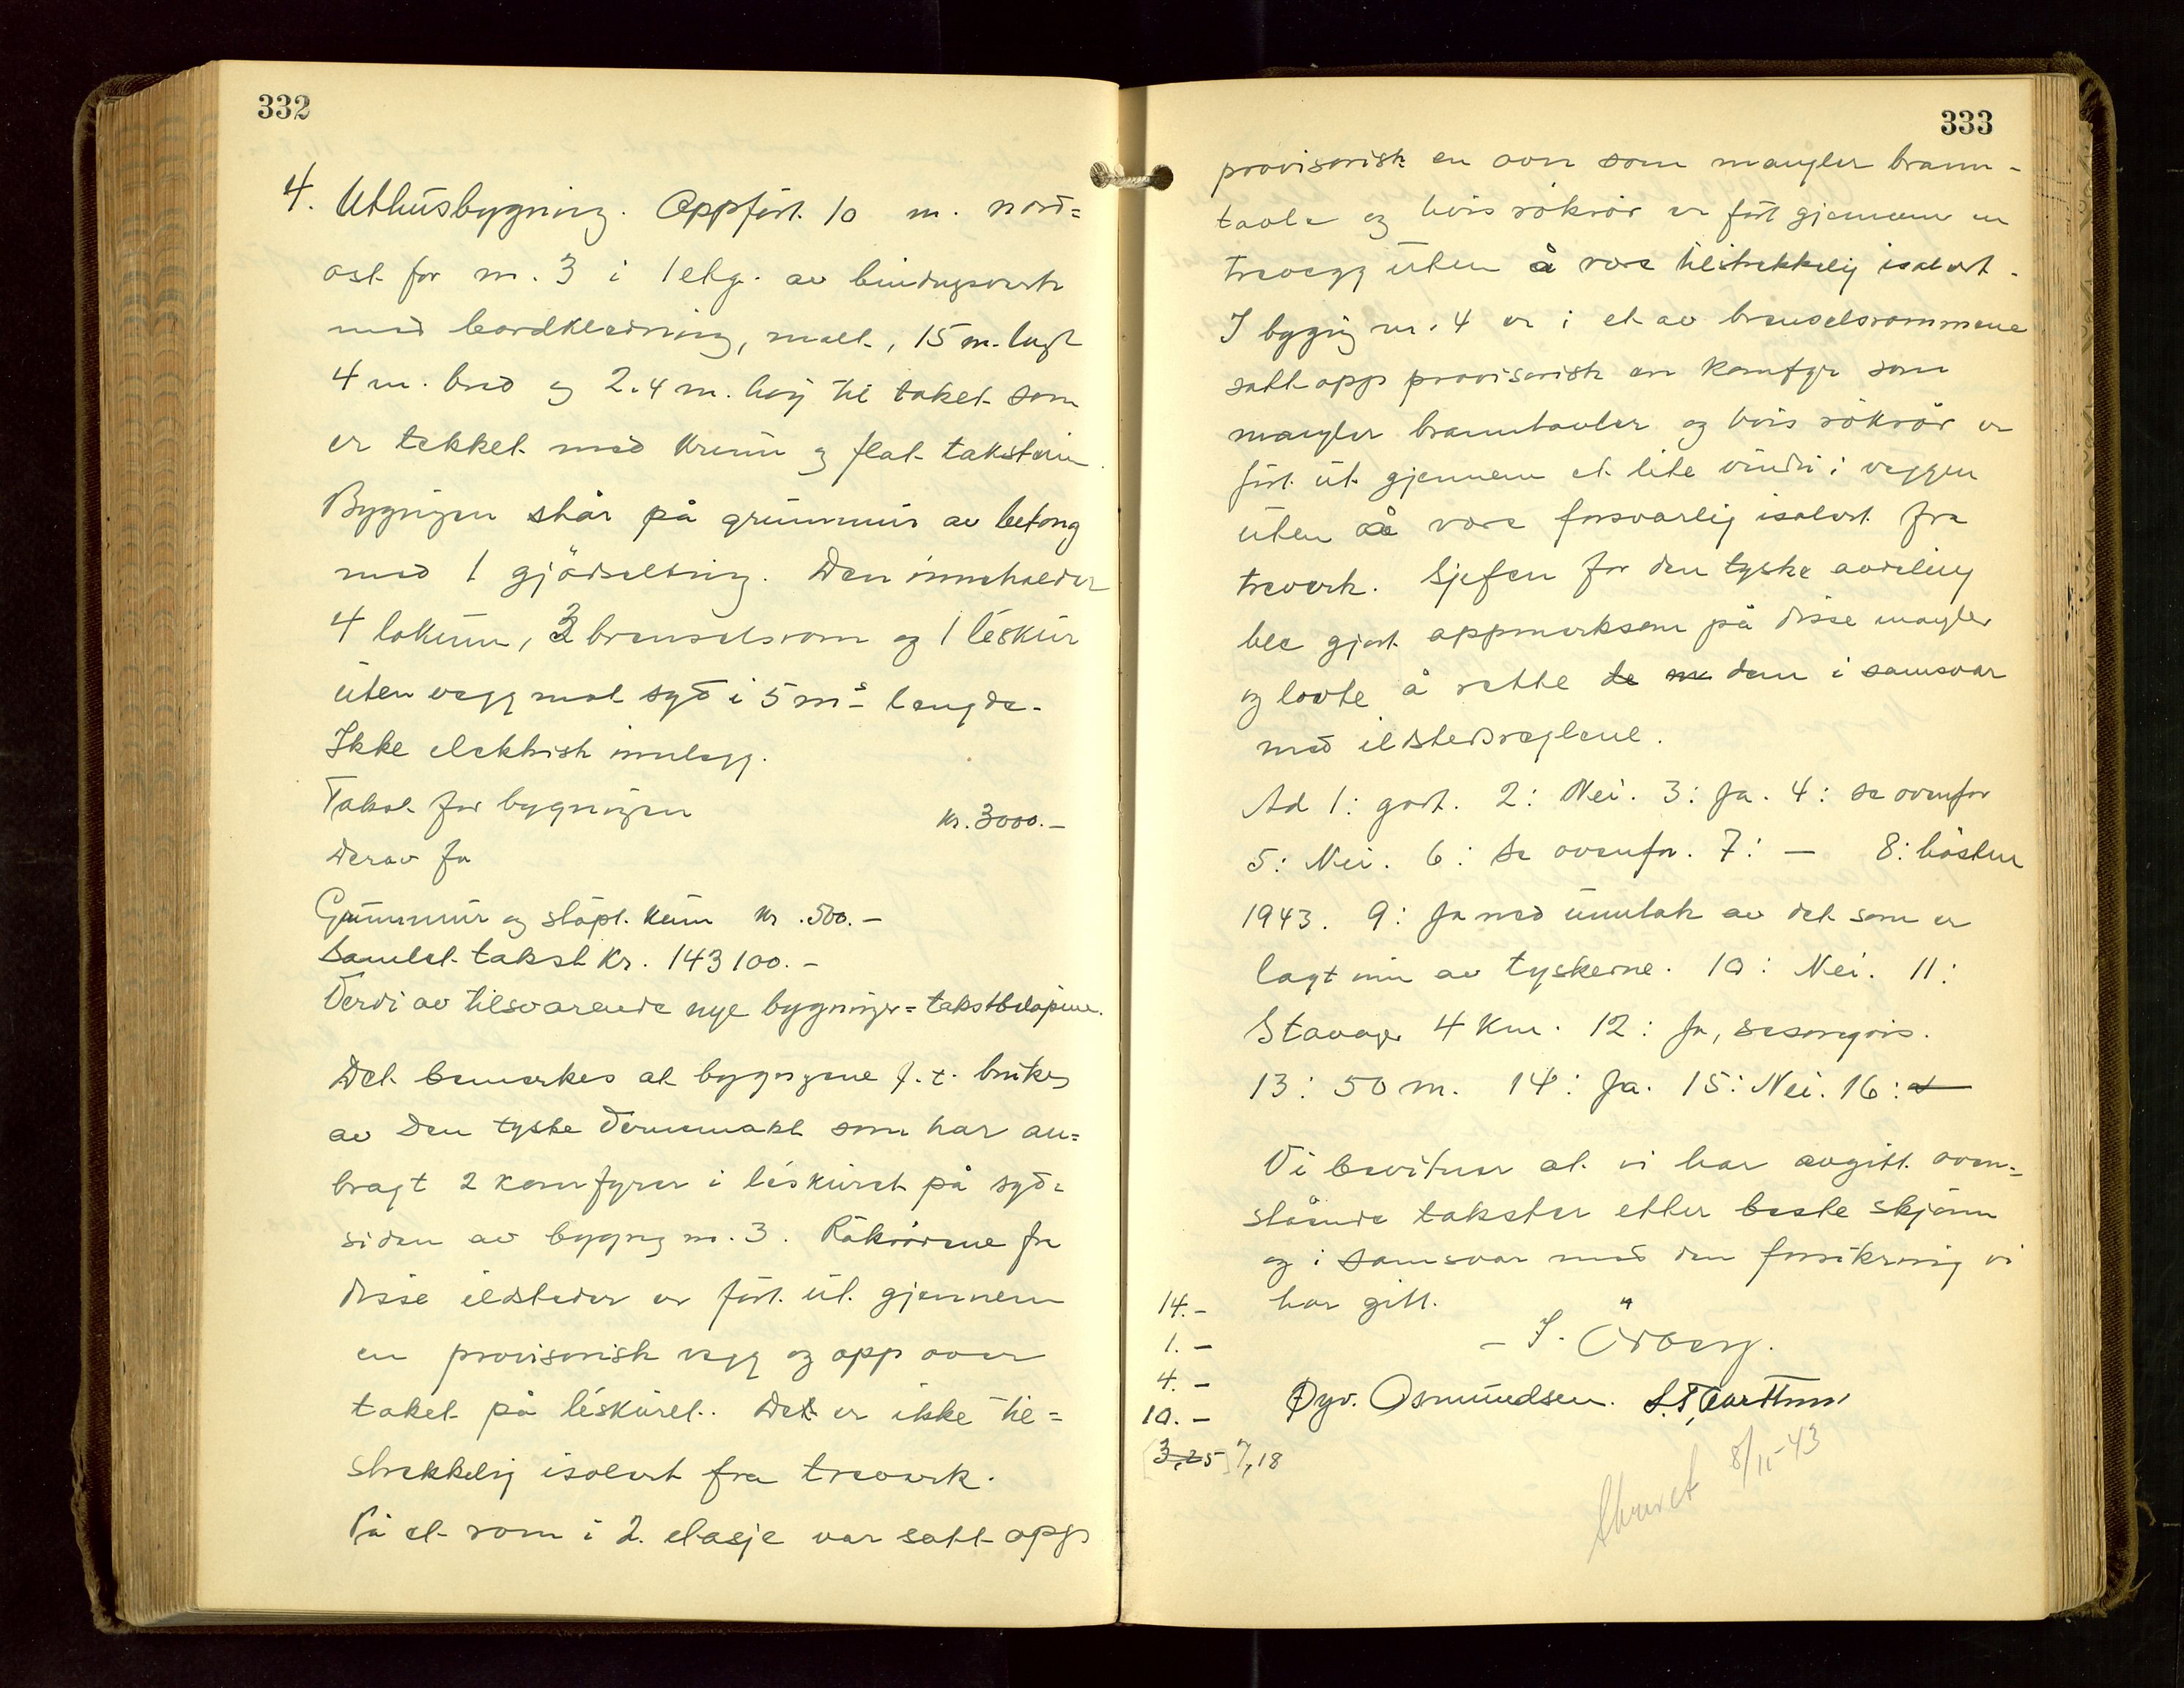 332
4. Uthusbygning. Oppført 10 m. nord-
ost for nr. 3 i 1 etg. av bindingsverk
med bordkledning, malt, 15 m. langt
4 m. bred og 2.4 m. høy til taket som
er tekket med krum og flat takstein.
Bygningen står på grunnmur av betong
med 1 gjødselbing. Den inneholder
4 lokum, 3 brenselsrom og 1 leskur
uten vegg mot syd i 5 m's lengde.
Ikke elektrisk innlegg.
Takst for bygningen kr. 3000.-
Derav for
Grunnmur og støpt kum kr. 500.-
Samlet takst kr. 143100.-
Verdi av tilsvarende nye bygninger = takstbeløpene.
Det bemerkes at bygningene f.t. brukes
av Den tyske Vernemakt som har an=
bragt 2 komfyrer i leskuret på syd=
siden av bygning nr. 3. Røkrørene fra
disse ildsteder er ført ut gjennem
en provisorisk vegg og opp over
taket på leskuret. Det er ikke til=
strekkelig isolert fra treverk.
På et rom i 2. etasje var satt opp
333
provisorisk en ovn som mangler brann-
tavle og hvis røkrør er ført gjennem en
trevegg uten å være tilstrekkelig isolert.
I bygning nr. 4 er i et av brenselsrommene
satt opp provisorisk en komfyr som
mangler branntavler og hvis røkrør er
ført ut gjennem et lite vindu i veggen
uten å være forsvarlig isolert fra
treverk. Sjefen for den tyske avdeling
ble gjort oppmerksom på disse mangler
og lovte å rette de dem i samsvar
med ildstedsreglene.
Ad 1: godt. 2: Nei. 3: Ja. 4: se ovenfor
5: Nei. 6: Se ovenfor. 7: — 8: høsten
1943. 9: Ja med unntak av det som er
lagt inn av tyskerne. 10: Nei. 11:
Stavanger 4 km. 12: Ja, sesongvis.
13: 50 m. 14: Ja. 15: Nei. 16: —
Vi bevitner at vi har avgitt oven-
stående takster etter beste skjønn
og i samsvar med den forsikring vi
har gitt.
14.-
1.-
4.-
10.-
[3,25] 7,18
- I. Örberg.
Øyv. Osmundsen.
8/11-43